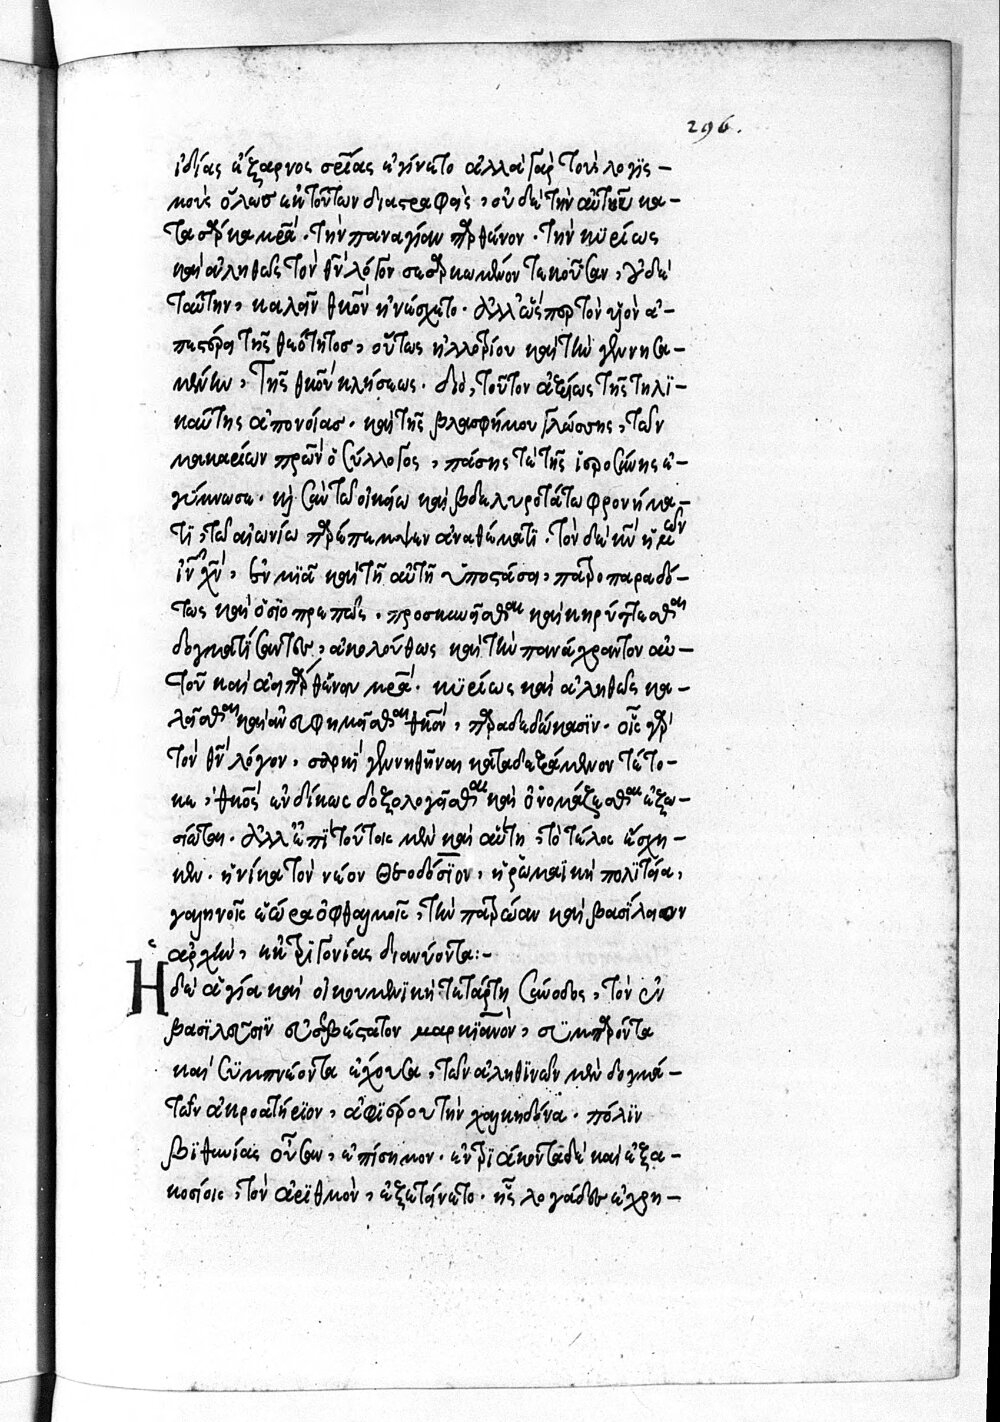 296.
ἰδίας ἔξαρνος σωτηρίας ἐγίνετο ἀλλὰ γὰρ τοὺς λογισ-
μοὺς ὅλως ἐκ τούτων διαστραφεὶς, οὐδὲ τὴν αὐτοῦ κα-
τὰ σάρκα μρα. τὴν παναγίαν παρθένον. τὴν κυρίως
καὶ ἀληθῶς τὸν θν λόγον σεσαρκωμένον τεκοῦσαν, οὐδὲ
ταύτην, καλεῖν θκον ἠνέσχετο. ἀλλ' ὥσπερ τὸν υἱὸν ἀ-
πεστέρει τῆς θεότητος, οὕτως ἠλλοτρίου καὶ τὴν γεννησα-
μένην, τῆς θκου κλήσεως. διὸ, τοῦτον ἀξίως τῆς τηλι-
καύτης ἀπονοίας. καὶ τῆς βλασφήμου γλώσσης, τῶν
μακαρίων πρων ὁ σύλλογος, πάσης τε τῆς ἱεροσύνης ἐ-
γύμνωσε. κὴ σὺν τῶ οἰκείω καὶ βδελυροτάτω φρονήμα-
τι, τῶ αἰωνίω παρέπεμψεν ἀναθέματι. τὸν δὲ κν ἡμῶν
ιν χν, ἐν μιᾶ καὶ τῆ αὐτῆ ὑποστάσει, πατροπαραδό-
τως καὶ ὁσιοπρεπῶς. προσκυνεῖσθαι καὶ κηρύττεσθαι
δογματίσαντες, ἀκολούθως καὶ τὴν πανάχραντον αὐ-
τοῦ καὶ ἀειπάρθενον μρα. κυρίως καὶ ἀληθῶς κα-
λεῖσθαι καὶ ἀνευφημεῖσθαι θκον, παραδεδώκασιν. οἷς γὰρ
τὸν θν λόγον, σαρκὶ γεννηθῆναι καταδεξάμενον τέτο-
κε, θκος ἐνδίκως δοξολογεῖσθαι καὶ ὀνομάζεσθαι ἠξί-
ωται. ἀλλ' ἐπὶ τούτοις μὲν καὶ αὕτη, τὸ τέλος ἔσχη-
κεν. ἡνίκα τὸν νέον Θεοδόσιον, ἡ ῥωμαϊκὴ πολιτεία,
γαληνοῖς ἑώρα ὀφθαλμοῖς, τὴν πατρώαν καὶ βασίλειον
ἀρχὴν, ἐκ τριγονίας διανύοντα:-
Ἡ
δὲ ἁγία καὶ οἰκουμενικὴ τετάρτη σύνοδος, τὸν ἐν
βασιλεῦσιν εὐσεβέστατον μαρκιανὸν, συμπαρόντα
καὶ συμπνέοντα ἔχουσα, τῶν ἀληθινῶν μὲν δογμά-
των ἀκροατήριον, ἀφιέρου τὴν χαλκηδόνα. πόλιν
βιθυνίας οὖσαν, ἐπίσημον. ἐν τριάκοντα δὲ καὶ ἑξα-
κοσίοις, τὸν ἀριθμὸν, ἐξετείνετο. ἧς λογάδες ἐχρη-